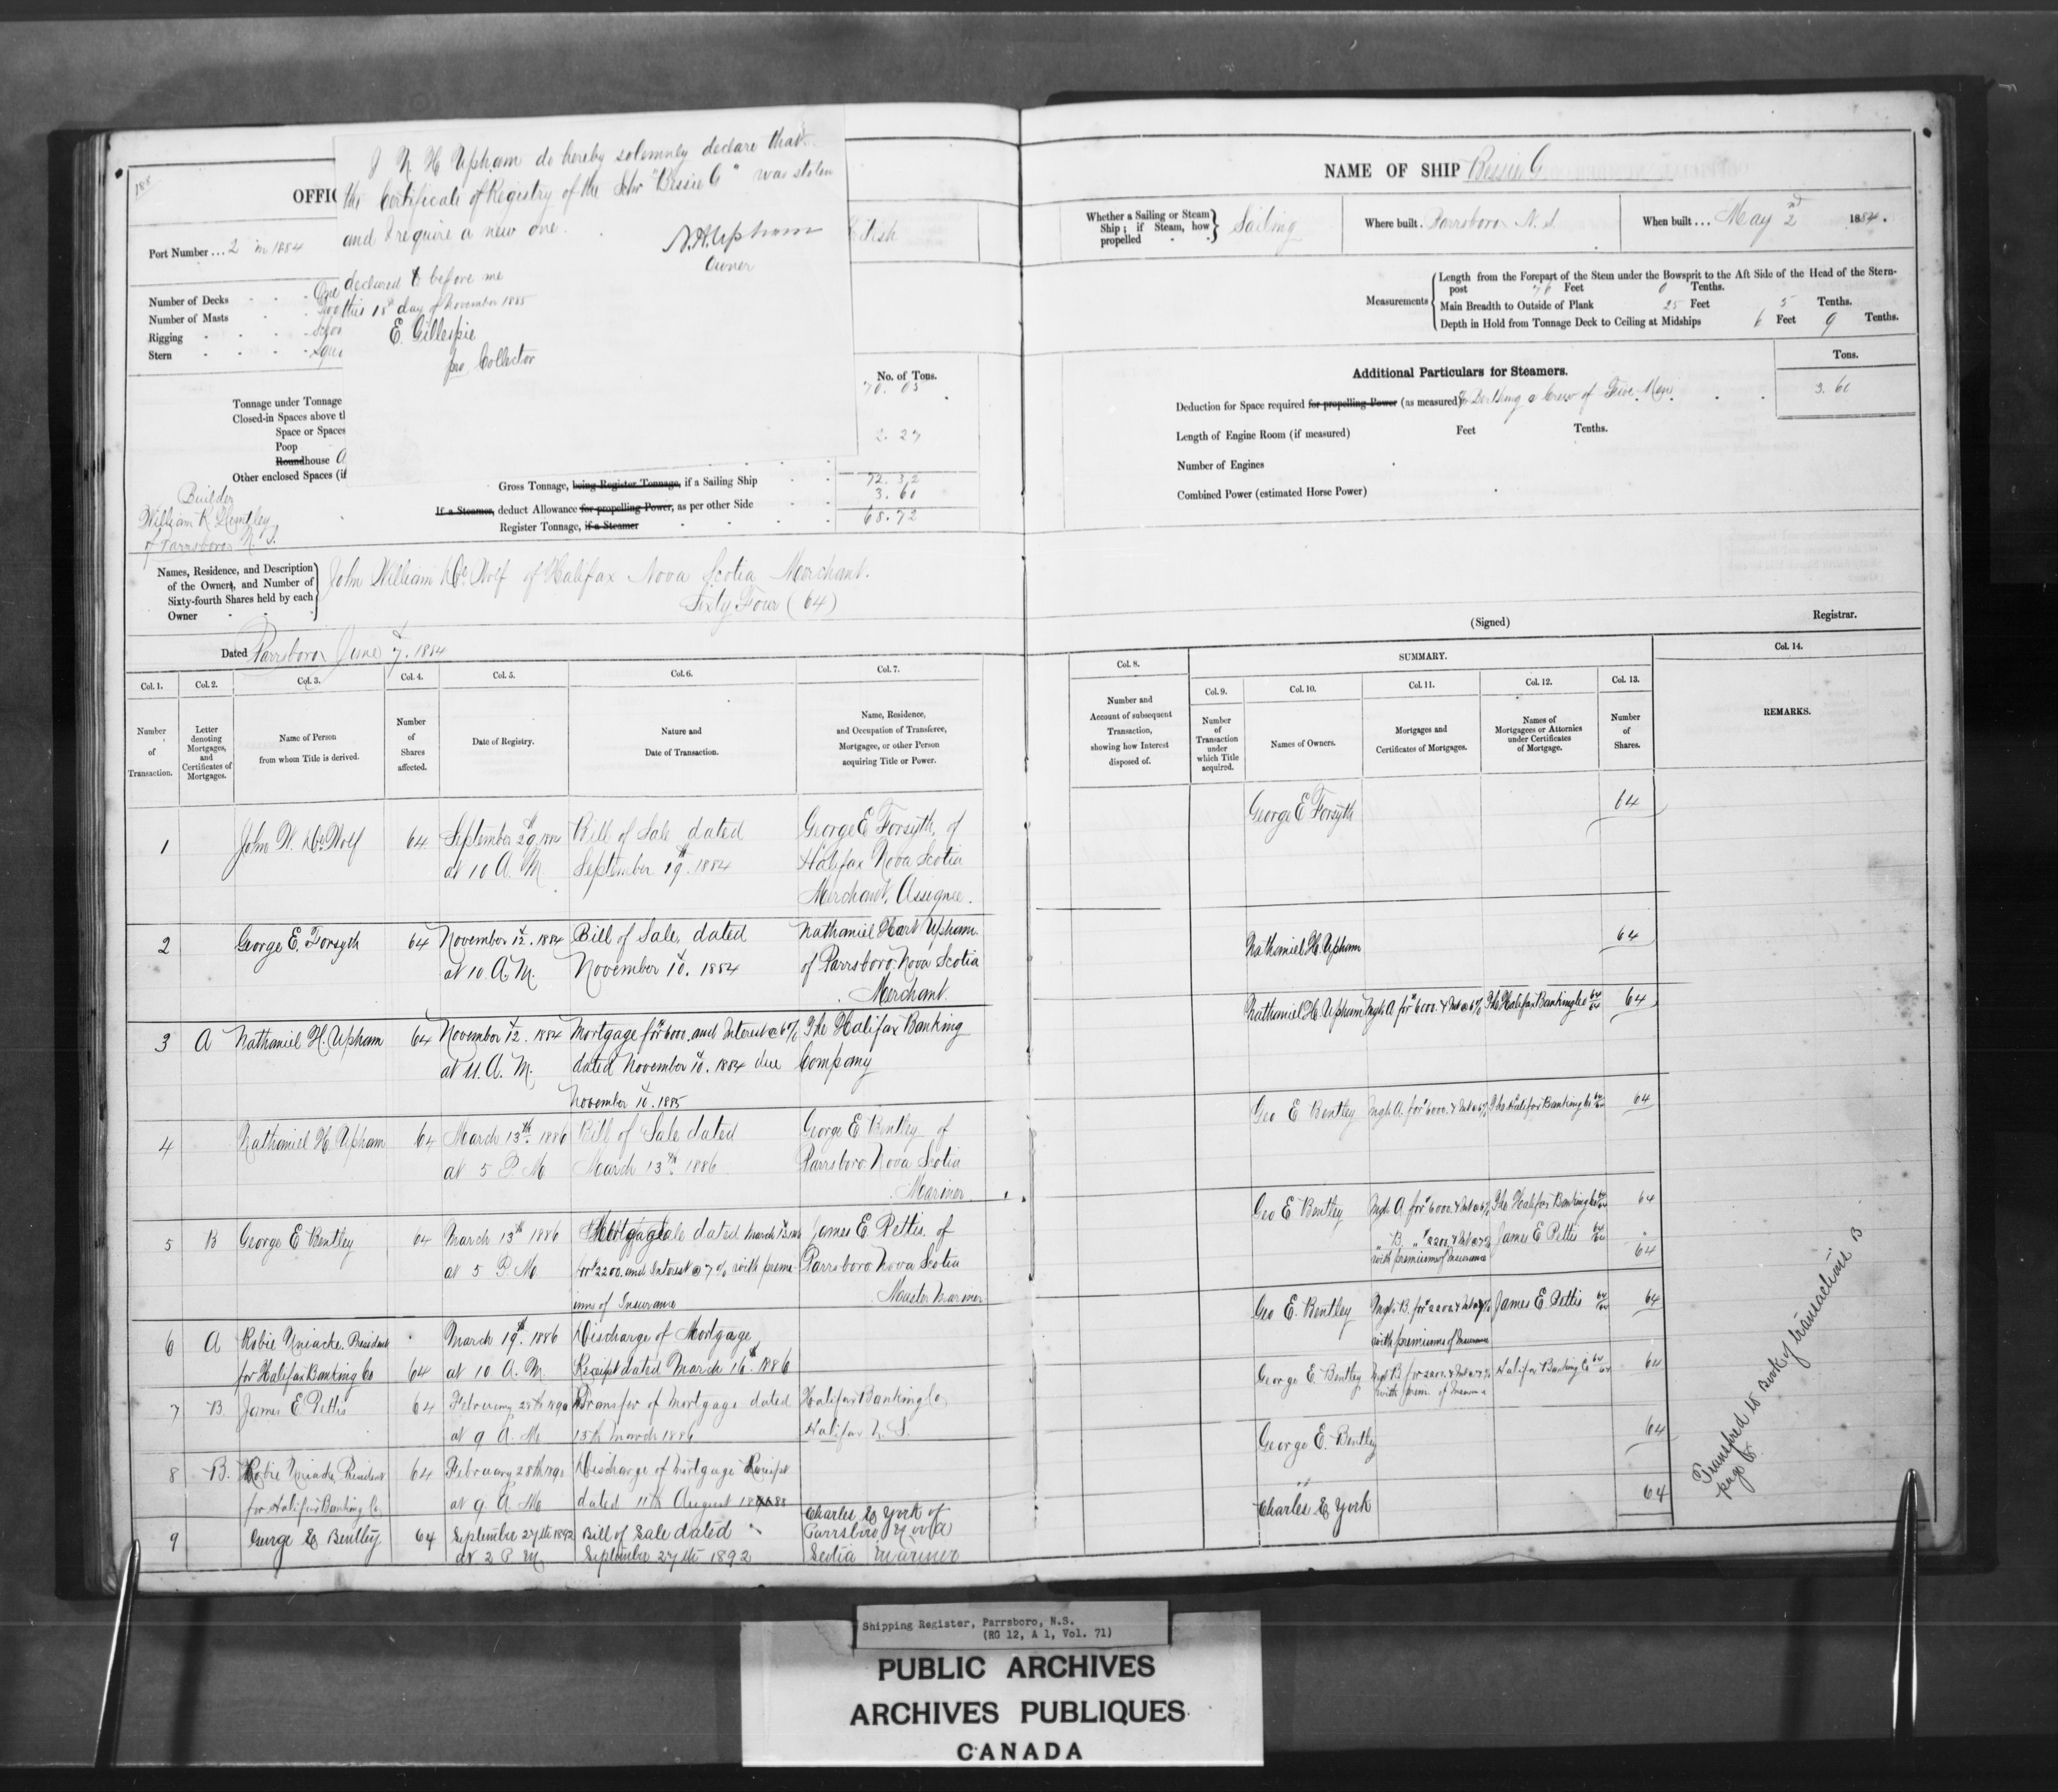 188
I N H Upham do hereby solemnly declare that
the Certificate of Registry of the Schr "Bessie G" was stolen
and I require a new one.
N. H. Upham
Owner
declared to before me
this 18th day of November 1885
E. Gillespie
pro Collector
OFFIC
Port Number ... 2 in 1884
tish
Number of Decks - - - One
Number of Masts - - Two
Rigging - - - - Schoo
Stern - - - - Squa
No. of Tons.
Tonnage under Tonnage 70.05
Closed-in Spaces above t
Space or Spaces
Poop 2.27
Roundhouse
Other enclosed Spaces (if
Gross Tonnage, being Register Tonnage, if a Sailing Ship 72.32
If a Steamer, deduct Allowance for propelling Power, as per other Side 3.60
Register Tonnage, if a Steamer 68.72
Builder
William R. Huntley
of Parrsboro N. S.
Names, Residence, and Description of the Owners, and Number of Sixty-fourth Shares held by each Owner
John William DeWolf of Halifax Nova Scotia Merchant.
Sixty Four (64)
Dated Parrsboro June 7. 1884
Col. 1. Col. 2. Col. 3. Col. 4. Col. 5. Col. 6. Col. 7.
Number of Transaction.
Letter denoting Mortgages, and Certificates of Mortgages.
Name of Person from whom Title is derived.
Number of Shares affected.
Date of Registry.
Nature and Date of Transaction.
Name, Residence, and Occupation of Transferee, Mortgagee, or other Person acquiring Title or Power.
1 John W. DeWolf 64 September 29th 1884 Bill of Sale dated George E Forsyth, of
at 10 A. M. September 19th. 1884 Halifax Nova Scotia
Merchant, Assignee.
2 George E. Forsyth 64 November 12. 1884 Bill of Sale, dated Nathaniel Hart Upham
at 10. A. M. November 10. 1884 of Parrsboro. Nova Scotia
Merchant.
3 A Nathaniel H. Upham 64 November 12. 1884 Mortgage for $6000. and Interest @ 6% The Halifax Banking
at 11. A. M. dated November 10. 1884 due Company
November 10. 1885
4 Nathaniel H. Upham 64 March 13th. 1886 Bill of Sale dated George E Bentley of
at 5 P M March 13th. 1886 Parrsboro Nova Scotia
Mariner
5 B George E Bentley 64 March 13th 1886 Mortgage dated March 13. 1886 James E Pettis. of
at 5 P. M. for $2200. and Interest @ 7% with prem- Parrsboro Nova Scotia
iums of Insurance Master Mariner
6 A Robie Uniacke. President March 19th. 1886 Discharge of Mortgage
for Halifax Banking Co 64 at 10 A. M. Receipt dated March 16th. 1886
7 B. James E Pettis 64 February 28th 1890 Transfer of Mortgage dated Halifax Banking Co,
at 9 A. M. 15th March 1886 Halifax N. S.
8 B. Robie Uniacke, President 64 February 28th 1890 Discharge of Mortgage Receipt
for Halifax Banking Co, at 9 A M dated 11th August 1888
9 George E Bentley 64 September 27th 1892 Bill of Sale dated Charles E York of
at 2 P M. September 27th 1892 Parrsboro Nova
Scotia Mariner
NAME OF SHIP Bessie G
Whether a Sailing or Steam Ship; if Steam, how propelled - - Sailing
Where built. Parrsboro N. S.
When built ... May 2nd 1884.
Measurements
Length from the Forepart of the Stem under the Bowsprit to the Aft Side of the Head of the Stern-
post 76 Feet 0 Tenths.
Main Breadth to Outside of Plank 25 Feet 5 Tenths.
Depth in Hold from Tonnage Deck to Ceiling at Midships 6 Feet 9 Tenths.
Additional Particulars for Steamers.
Tons.
Deduction for Space required for propelling Power (as measured) for Berthing a Crew of Five Men. 3.60
Length of Engine Room (if measured) Feet Tenths.
Number of Engines
Combined Power (estimated Horse Power)
(Signed) Registrar.
Col. 8. SUMMARY. Col. 14.
Col. 9. Col. 10. Col. 11. Col. 12. Col. 13.
Number and Account of subsequent Transaction, showing how Interest disposed of.
Number of Transaction under which Title acquired.
Names of Owners.
Mortgages and Certificates of Mortgages.
Names of Mortgagees or Attornies under Certificates of Mortgage.
Number of Shares.
REMARKS.
George E Forsyth 64
Nathaniel H. Upham 64
Nathaniel H. Upham Mtge A for $6000. & Int @ 6% The Halifax Banking Co 64/64 64
Geo E Bentley Mtge A. for $6000. & Int @ 6% The Halifax Banking Co 64/64 64
Geo E Bentley Mtge A for $6000. & Int @ 6% The Halifax Banking Co 64/64 64
" B. " $2200. & Int @ 7% James E Pettis 64/64 64
with premiums of Insurance
Geo E. Bentley Mtge B. for $2200 & Int @ 7% James E. Pettis 64/64 64
with premiums of Insurance
George E. Bentley Mtge B for 2200. & Int @ 7% Halifax Banking Co 64/64 64
with prem. of Insurance
George E. Bentley 64
" Charles E York 64
Transfered to Book of transactions B
page 8.
Shipping Register, Parrsboro, N.S.
(RG 12, A 1, Vol. 71)
PUBLIC ARCHIVES
ARCHIVES PUBLIQUES
CANADA